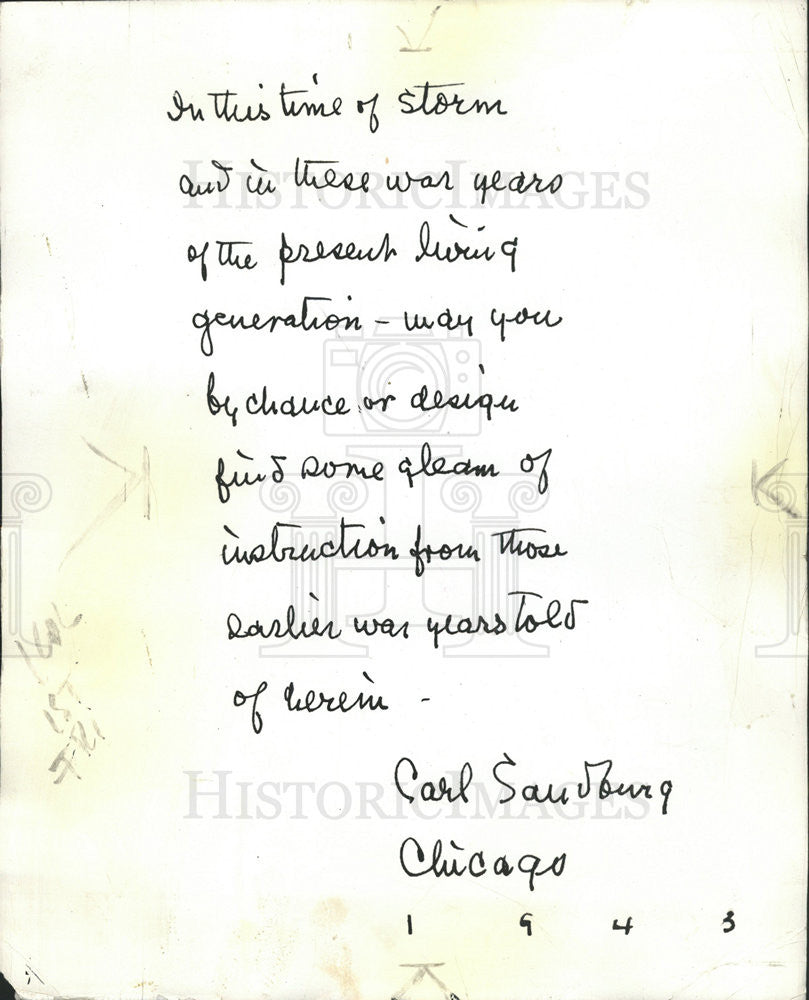 In this time of storm
and in these war years
of the present living
generation – may you
by chance or design
find some gleam of
instruction from those
earlier war years told
of herein –
Carl Sandburg
Chicago
1 9 4 3
HISTORICIMAGES
HISTORICIMAGES